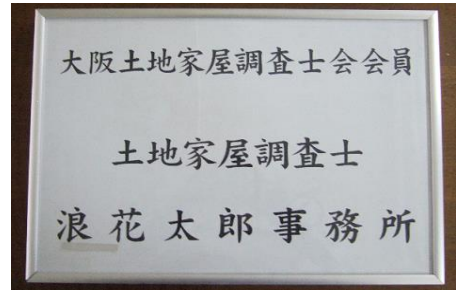 大阪土地家屋調査士会会員
土地家屋調査士
浪花太郎事務所